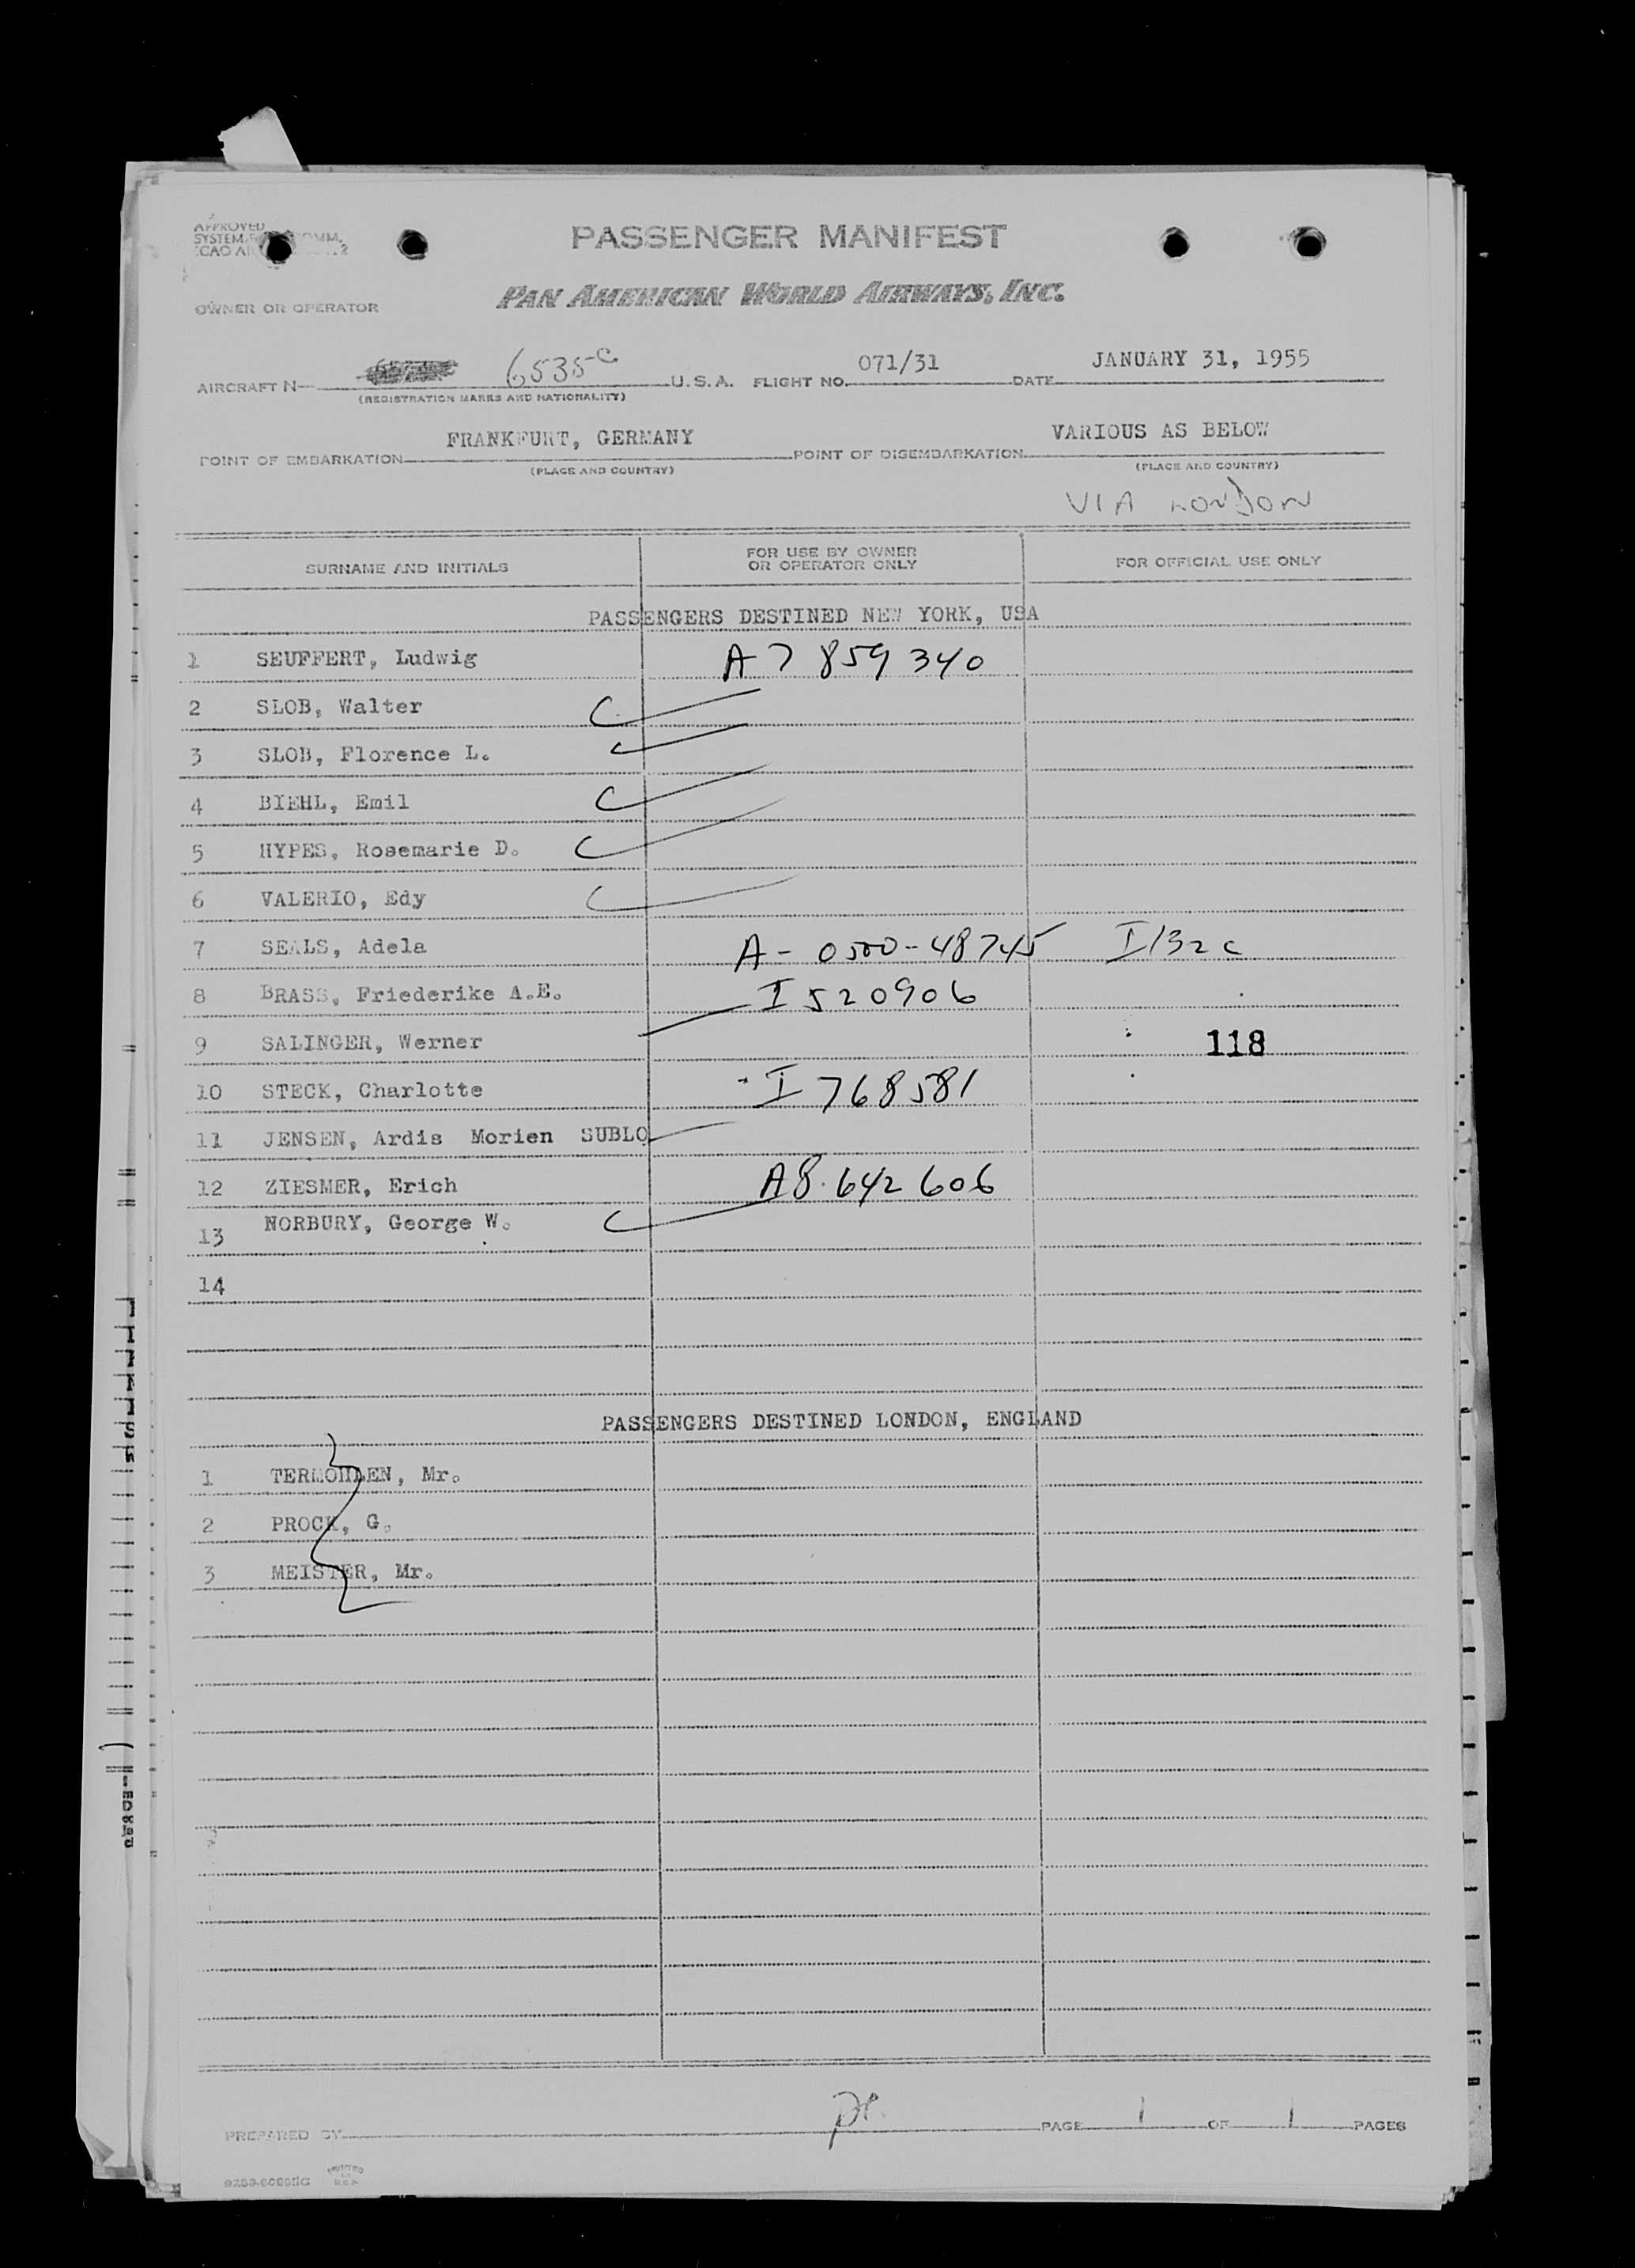 APPROVED
SYSTEM COMM.
ICAO
PASSENGER MANIFEST
OWNER OR OPERATOR PAN AMERICAN WORLD AIRWAYS, INC.
AIRCRAFT N— 6535C U.S.A. FLIGHT NO. 071/31 DATE JANUARY 31, 1955
(REGISTRATION MARKS AND NATIONALITY)
POINT OF EMBARKATION FRANKFURT, GERMANY POINT OF DISEMBARKATION VARIOUS AS BELOW
(PLACE AND COUNTRY) (PLACE AND COUNTRY)
VIA LONDON
SURNAME AND INITIALS FOR USE BY OWNER OR OPERATOR ONLY FOR OFFICIAL USE ONLY
PASSENGERS DESTINED NEW YORK, USA
1 SEUFFERT, Ludwig A7 859 340
2 SLOB, Walter
3 SLOB, Florence L.
4 BIEHL, Emil
5 HYPES, Rosemarie D.
6 VALERIO, Edy
7 SEALS, Adela A- 0500-48745 I132c
8 BRASS, Friederike A.E. I 520906
9 SALINGER, Werner 118
10 STECK, Charlotte I 768581
11 JENSEN, Ardis Morien SUBLO
12 ZIESMER, Erich A8.642 606
13 NORBURY, George W.
14
PASSENGERS DESTINED LONDON, ENGLAND
1 TERMOHLEN, Mr.
2 PROCK, G.
3 MEISTER, Mr.
PREPARED BY PAGE 1 OF 1 PAGES